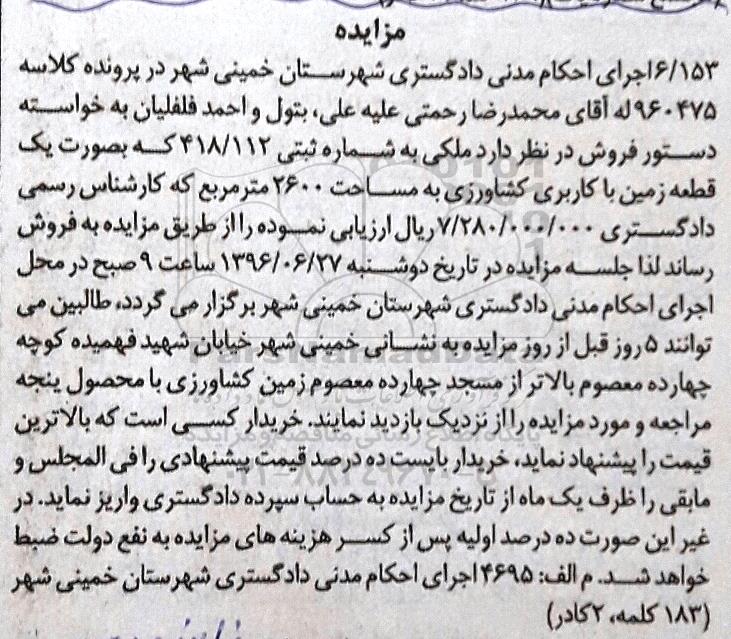 مزایده
۶/۱۵۳اجرای احکام مدنی دادگستری شهرستان خمینی شهر در پرونده کلاسه
۹۶۰۴۷۵له آقای محمدرضا رحمتی علیه علی، بتول و احمد فلفلیان به خواسته
دستور فروش در نظر دارد ملکی به شماره ثبتی ۴۱۸/۱۱۲ که بصورت یک
قطعه زمین با کاربری کشاورزی به مساحت ۲۶۰۰ مترمربع که کارشناس رسمی
دادگستری ۷/۲۸۰/۰۰۰/۰۰۰ریال ارزیابی نموده را از طریق مزایده به فروش
رساند لذا جلسه مزایده در تاریخ دوشنبه ۱۳۹۶/۰۶/۲۷ ساعت ۹ صبح در محل
اجرای احکام مدنی دادگستری شهرستان خمینی شهر برگزار می گردد، طالبین می
توانند ۵ روز قبل از روز مزایده به نشانی خمینی شهر خیابان شهید فهمیده کوچه
چهارده معصوم بالاتر از مسجد چهارده معصوم زمین کشاورزی با محصول ینجه
مراجعه و مورد مزایده را از نزدیک بازدید نمایند. خریدار کسی است که بالاترین
قیمت را پیشنهاد نماید، خریدار بایست ده درصد قیمت پیشنهادی را فی المجلس و
مابقی را ظرف یک ماه از تاریخ مزایده به حساب سپرده دادگستری واریز نماید. در
غیر این صورت ده درصد اولیه پس از کسر هزینه های مزایده به نفع دولت ضبط
خواهد شد. م الف: ۴۶۹۵ اجرای احکام مدنی دادگستری شهرستان خمینی شهر
(۱۸۳ کلمه، ۲کادر)